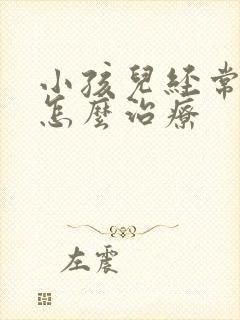 小孩兒經常
怎麼治療
左震